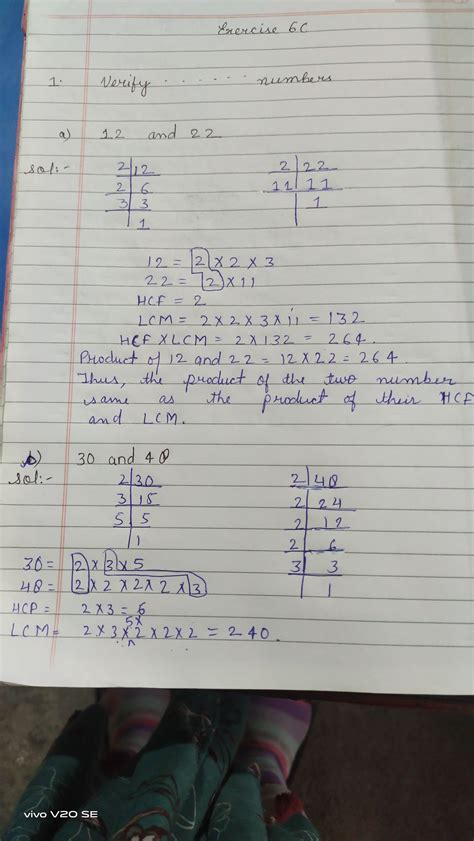 Exercise 6C
1. Verify ...... numbers
a) 12 and 22
sol:-
2 | 12
2 | 6
3 | 3
| 1
2 | 22
11 | 11
| 1
12 = 2 × 2 × 3
22 = 2 × 11
HCF = 2
LCM = 2 × 2 × 3 × 11 = 132
HCF × LCM = 2 × 132 = 264.
Product of 12 and 22 = 12 × 22 = 264.
Thus, the product of the two number
same as the product of their HCF
and LCM.
b) 30 and 48
sol:-
2 | 30
3 | 15
5 | 5
| 1
2 | 48
2 | 24
2 | 12
2 | 6
3 | 3
| 1
30 = 2 × 3 × 5
48 = 2 × 2 × 2 × 2 × 3
HCF = 2 × 3 = 6
LCM = 2 × 3 × 5 × 2 × 2 × 2 = 240.
vivo V20 SE